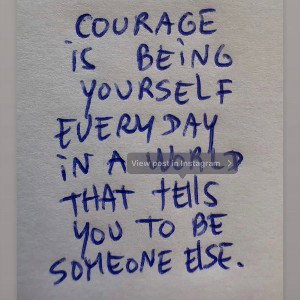 COURAGE
iS BEiNG
YOURSELF
EVERYDAY
iN A WORLD
View post in Instagram
THAT tELLS
YOU TO BE
SOMEONE ELSE.